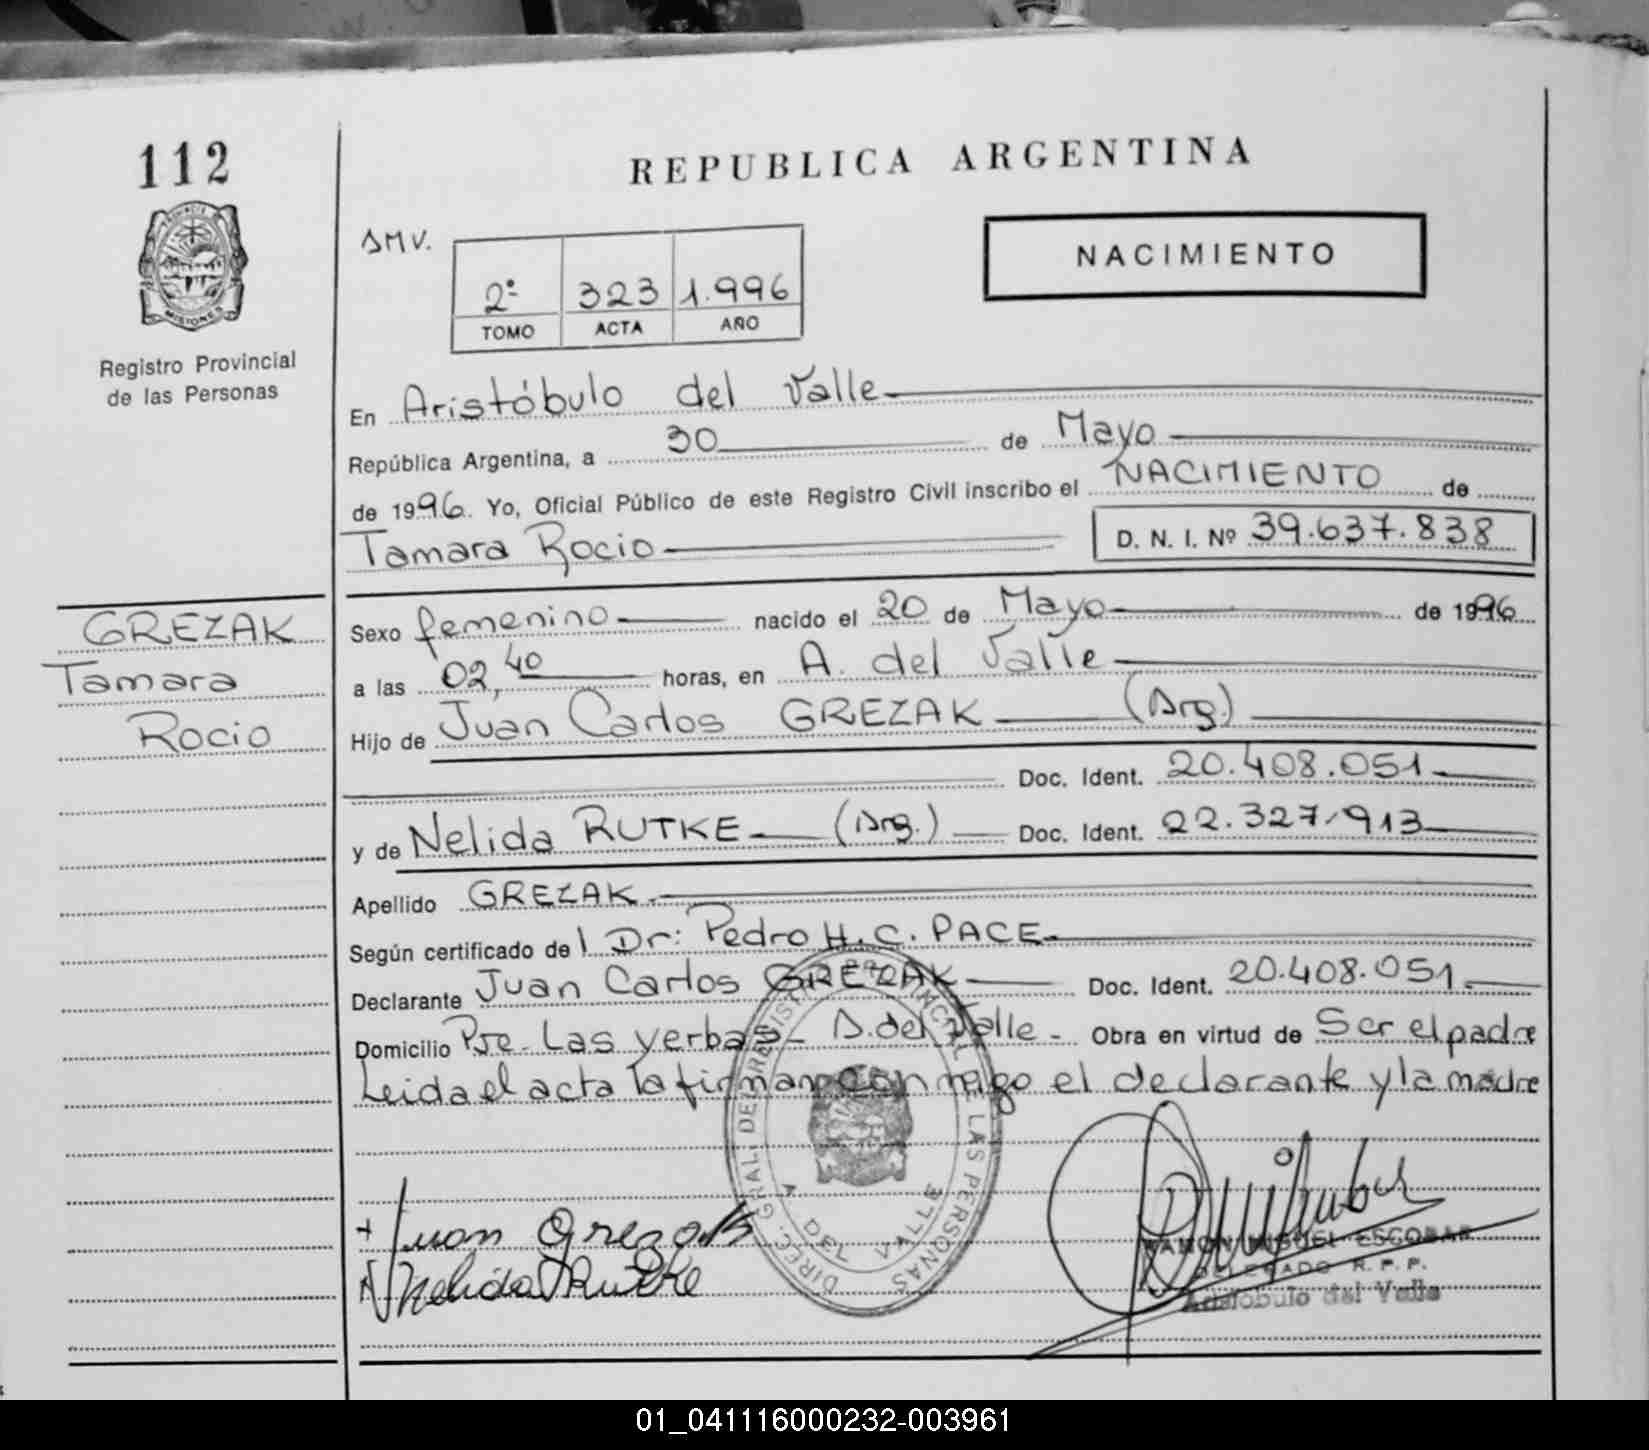 112
REPUBLICA ARGENTINA
PROVINCIA DE
MISIONES
Registro Provincial
de las Personas
NACIMIENTO
2º 323 1.996
TOMO ACTA AÑO
En Aristóbulo del Valle
República Argentina, a 30 de Mayo
de 1996. Yo, Oficial Público de este Registro Civil inscribo el NACIMIENTO de
Tamara Rocio D. N. I. Nº 39.637.838
GREZAK
Tamara
Rocio
Sexo femenino nacido el 20 de Mayo de 1996
a las 02,40 horas, en A. del Valle
Hijo de Juan Carlos GREZAK (Arg.)
Doc. Ident. 20.408.051
y de Nelida RUTKE (Arg.) Doc. Ident. 22.327.913
Apellido GREZAK
Según certificado del Dr: Pedro H. C. PACE
Declarante Juan Carlos GREZAK Doc. Ident. 20.408.051
Domicilio Pje. Las yerbas - A. del Valle - Obra en virtud de Ser el padre
Leida el acta la firman conmigo el declarante y la madre
DIREC. GRAL. DE REGISTRO PROVINCIAL DE LAS PERSONAS
A. DEL VALLE
Juan Grezak
Nelida Rutke
RAMON MIGUEL ESCOBAR
DELEGADO R. P. P.
Aristobulo del Valle
01_041116000232-003961